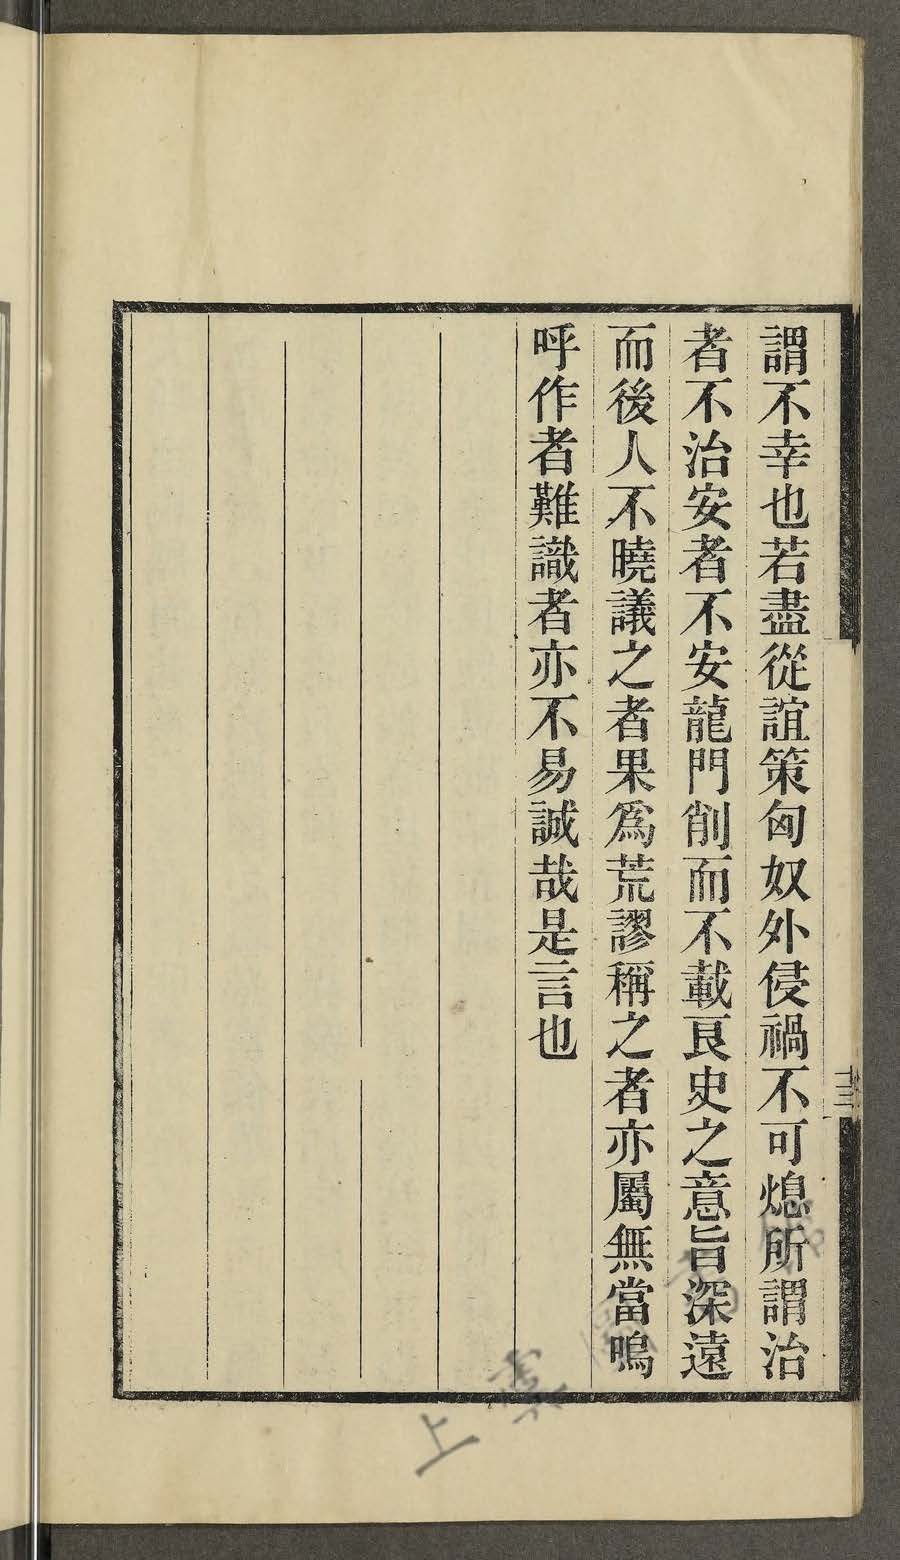 謂不幸也若盡從誼策匈奴外侵禍不可熄所謂治
者不治安者不安龍門削而不載良史之意旨深遠
而後人不曉議之者果爲荒謬稱之者亦屬無當嗚
呼作者難識者亦不易誠哉是言也
十三
上虞圖書館